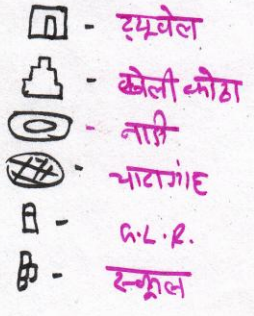 - ट्यूवेल
- खेली कोठा
- नाडी
- चारागाह
- G.L.R.
- स्कूल